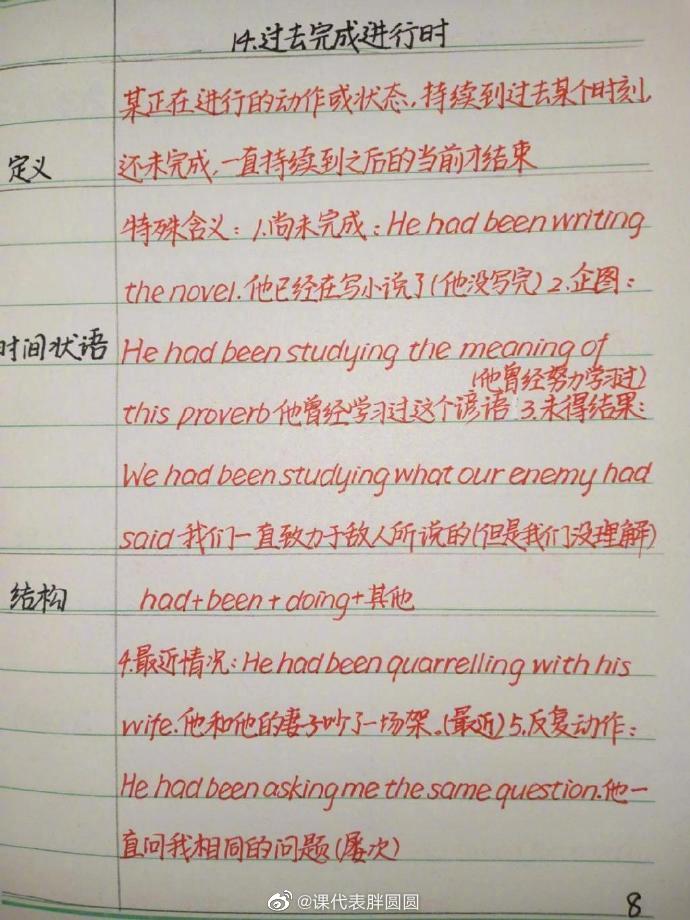 14.过去完成进行时
某正在进行的动作或状态,持续到过去某个时刻,
定义
还未完成,一直持续到之后的当前才结束
特殊含义:1.尚未完成:He had been writing
the novel.他已经在写小说了(他没写完) 2.企图:
时间状语
He had been studying the meaning of
(他曾经努力学习过)
this proverb 他曾经学习过这个谚语 3.未得结果:
We had been studying what our enemy had
said 我们一直致力于敌人所说的(但是我们没理解)
结构
had+been+doing+其他
4.最近情况:He had been quarrelling with his
wife.他和他的妻子吵了一场架。(最近) 5.反复动作:
He had been asking me the same question.他一
直问我相同的问题(屡次)
8
@课代表胖圆圆